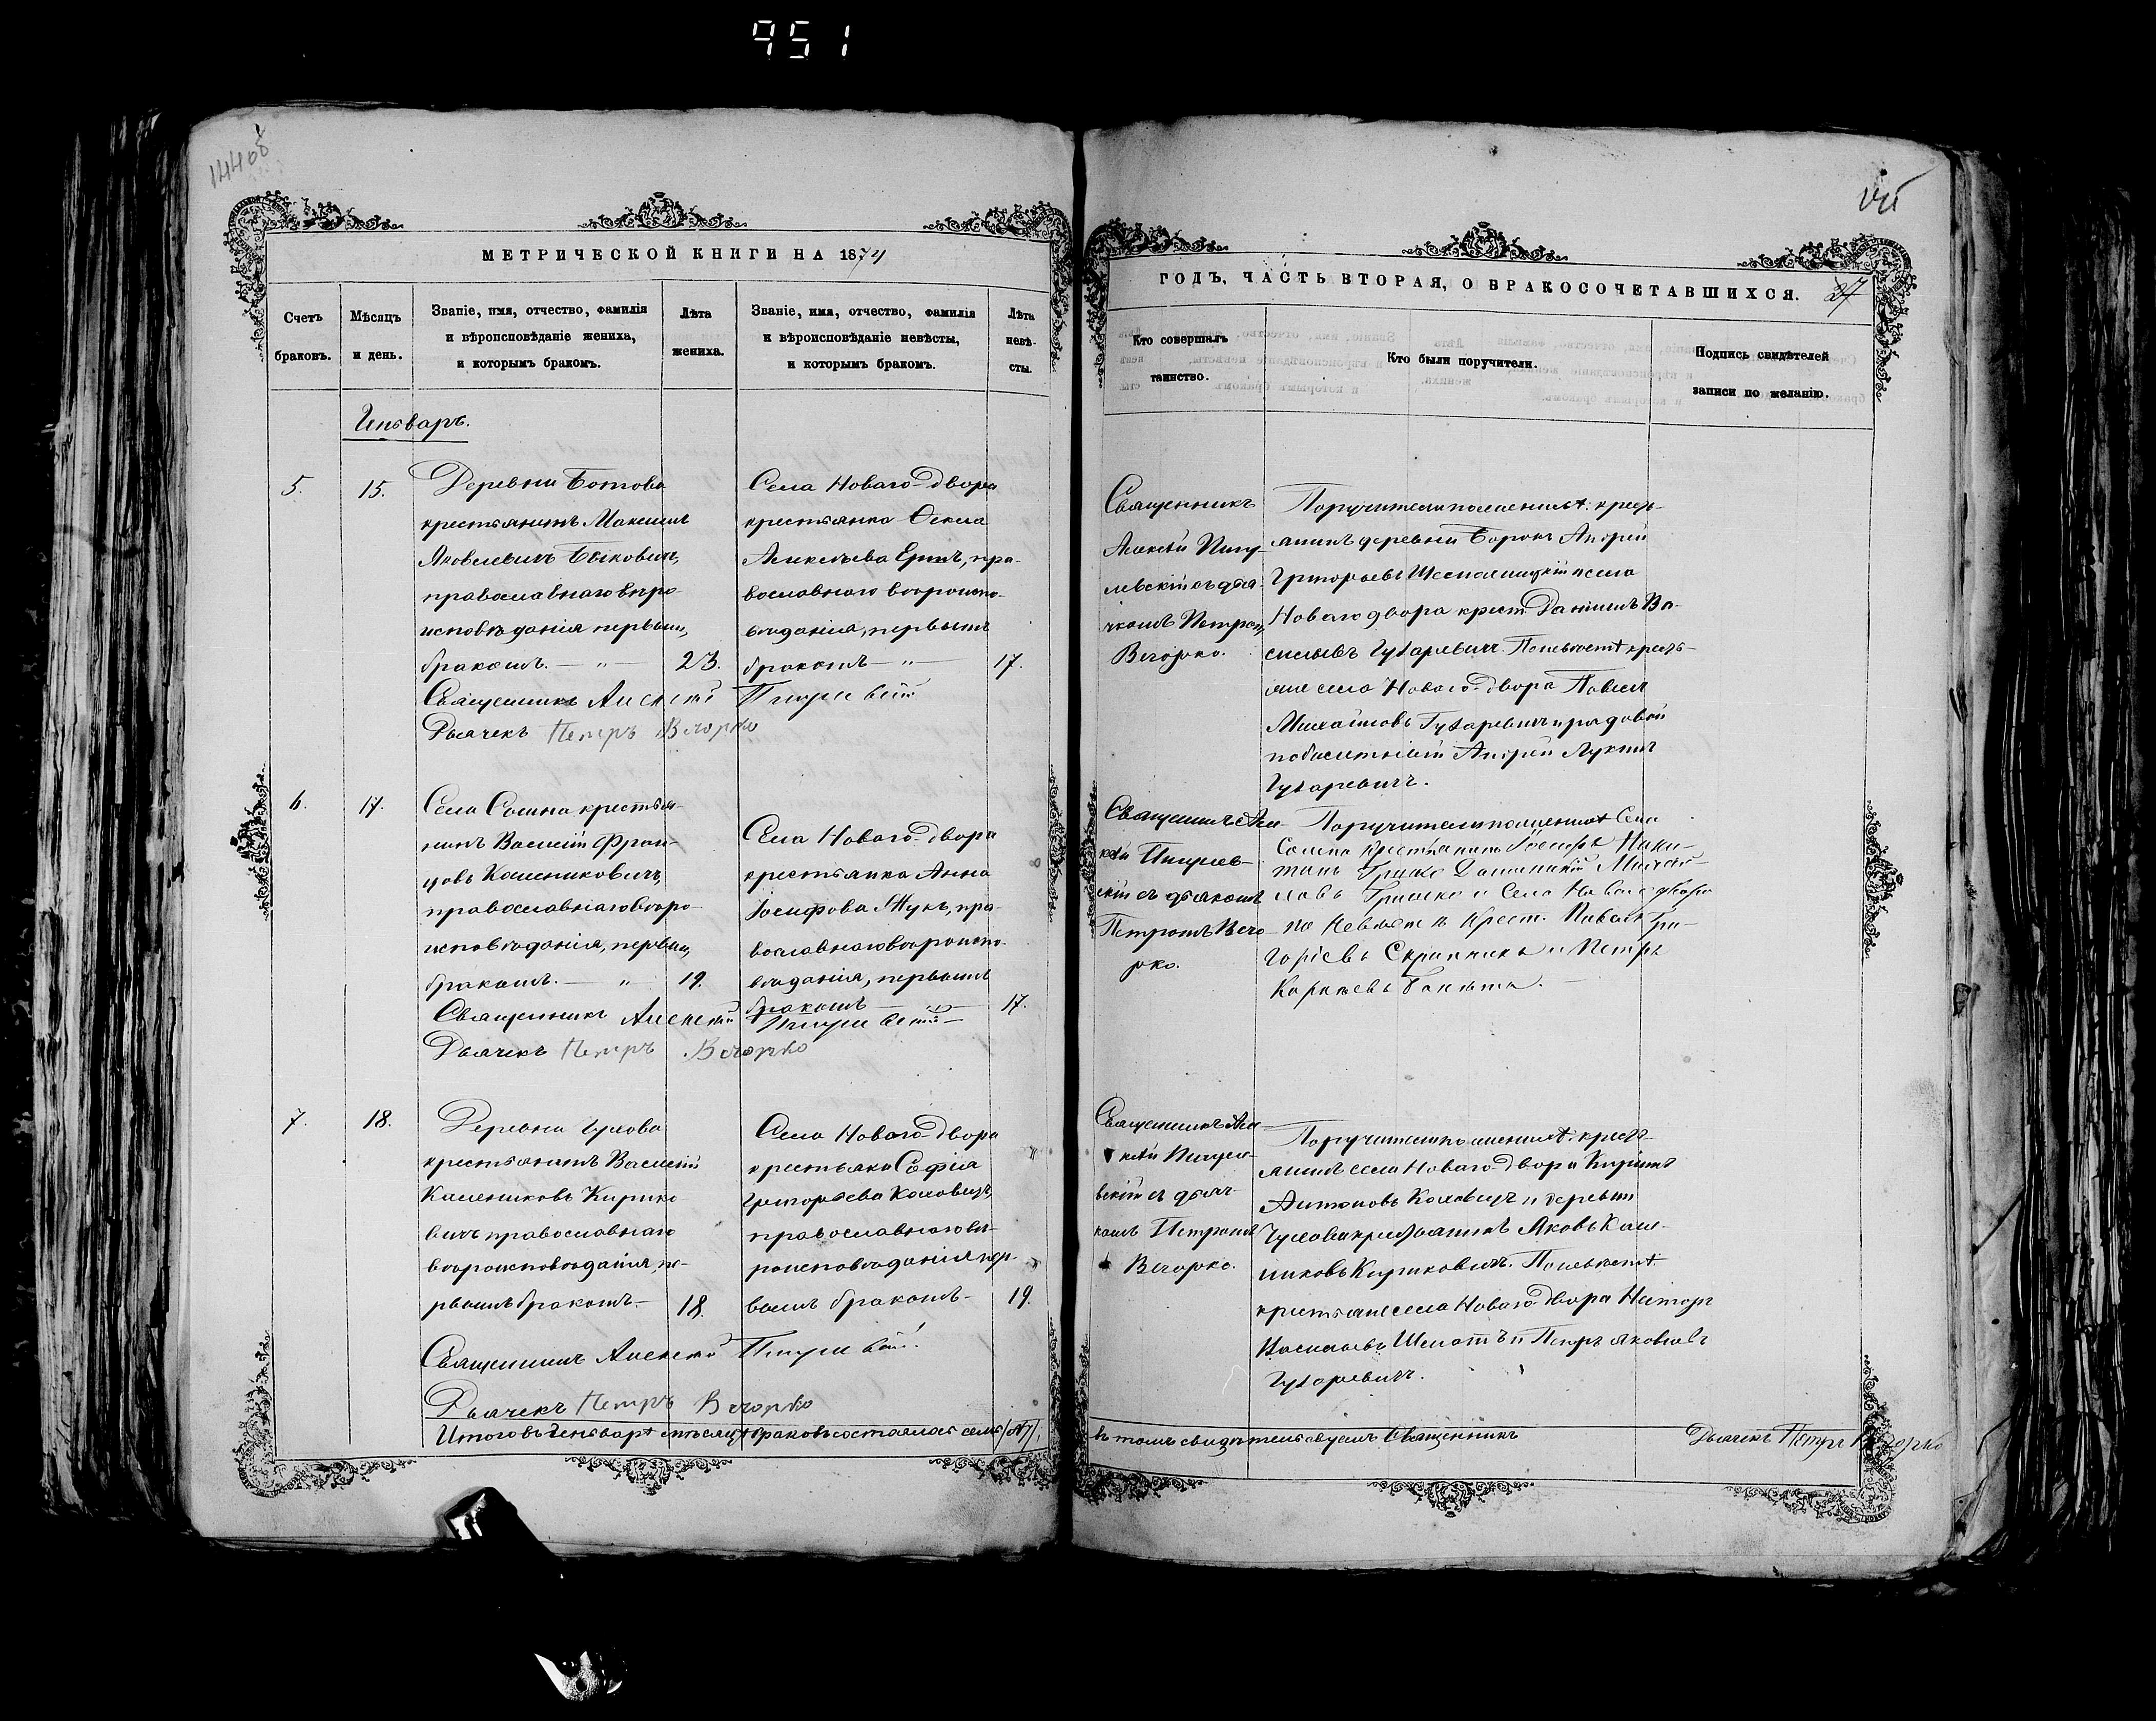 951
14408
МЕТРИЧЕСКОЙ КНИГИ НА 1874
Счетъ браковъ.
Мѣсяцъ и день.
Званіе, имя, отчество, фамилія
и вѣроисповѣданіе жениха,
и которымъ бракомъ.
Лѣта жениха.
Званіе, имя, отчество, фамилія
и вѣроисповѣданіе невѣсты,
и которымъ бракомъ.
Лѣта невѣсты.
Генваръ.
5.
15.
Деревни Ботова
крестьянинъ Максимъ
Яковлевичъ Быковичъ,
православнаго вѣро
исповѣданія первымъ
бракомъ. — „ —
23.
Села Новаго-двора
крестьянка Ѳекла
Алексѣева Ермъ, пра-
вославнаго вѣроиспо-
вѣданія, первымъ
бракомъ — „ —
17.
Священникъ Алексѣй
Дьячекъ Петръ Вечорко
6.
17.
Села Сошна крестья-
нинъ Василій Фран-
цовъ Колениковичъ,
православнаго вѣро-
исповѣданія, первымъ
бракомъ. — „
19.
Села Новаго-двора
крестьянка Анна
Іосифова Жукъ, пра-
вославнаго вѣроиспо-
вѣданія, первымъ
бракомъ — „ —
17.
Священникъ Алексѣй
Дьячекъ Петръ Вечорко
7.
18.
Деревни Гулова
крестьянинъ Василій
Калениковъ Кирико
вичъ православнаго
вѣроисповѣданія, пе-
рвымъ бракомъ.—
18.
Села Новаго-двора
крестьянка Софія
Григорьева Коловичъ,
православнаго вѣ-
роисповѣданія пер-
вымъ бракомъ-
19.
Священникъ Алексѣй
Дьячекъ Петръ Вечорко
Итого въ Генварѣ мѣсяцѣ браковъ состоялось семь /№7/,
27
ГОДЪ, ЧАСТЬ ВТОРАЯ, О БРАКОСОЧЕТАВШИХСЯ.
Кто совершалъ
таинство.
Кто были поручители.
Подпись свидѣтелей
записи по желанію.
Священникъ
Алексѣй
съ дья-
чкомъ Петромъ
Вечорко.
Поручители по женихѣ: кресть-
янинъ деревни Борокъ Андрей
Григорьевъ и села
Новаго двора крест. Даніилъ Ва-
сильевъ Гухаревичъ. По невѣстѣ кресть-
яне села Новаго-двора Павелъ
Михайловъ Гухаревичъ и рядовой
Андрей Лукинъ
Гухаревичъ.
Священникъ Але-
ксѣй
съ дьякомъ
Петромъ Вечо-
рко.
Поручители по женихѣ Села
Сошна Крестьянинъ Іосифъ Ники-
тинъ Гришко Михай-
ловъ Гришко и Села Новаго двора
по Невѣстѣ Крест. Павелъ Гри-
горіевъ Скрипникъ и Петръ
Корнѣевъ
Священникъ Але-
ксѣй
съ дьяч-
комъ Петромъ
Вечорко.
Поручители по женихѣ: кресть-
янинъ села Новаго-двора Киріилъ
Антоновъ Коловичъ и деревни
Гулова крестьянинъ Яковъ Кале-
никовъ Кириковичъ. По невѣстѣ
крестьяне села Новаго-двора Несторъ
Шелотъ и Петръ Яковлевъ
Гухаревичъ.
въ томъ свидѣтельствуемъ Священникъ
Дьячекъ Петръ Вечорко